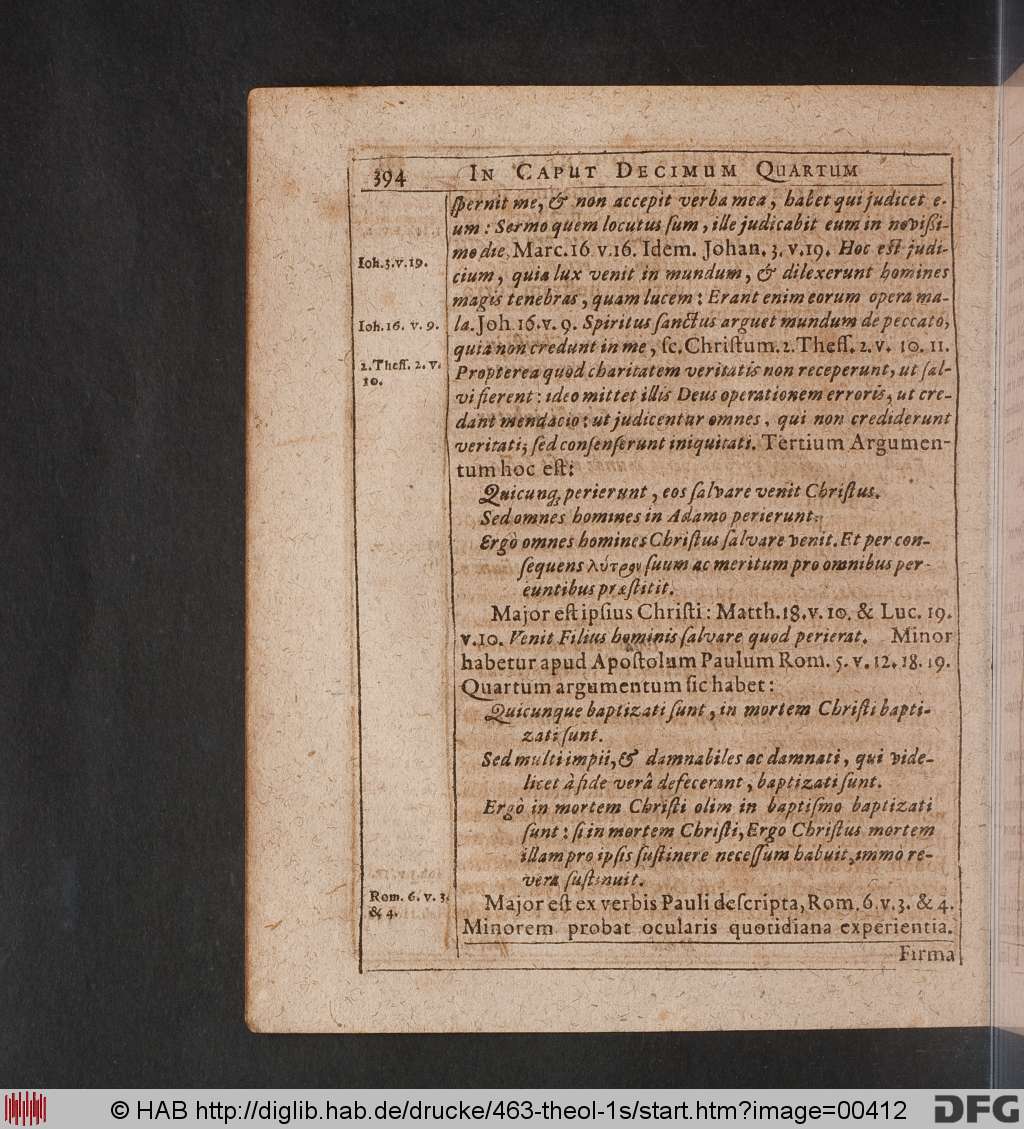 394 IN CAPUT DECIMUM QUARTUM
ſpernit me, & non accepit verba mea, habet qui judicet e-
um: Sermo quem locutus ſum, ille judicabit eum in noviſſi-
mo die, Marc. 16 v. 16. Idem. Johan. 3. v. 19. Hoc eſt judi-
Ioh. 3. v. 19.
cium, quia lux venit in mundum, & dilexerunt homines
magis tenebras, quam lucem: Erant enim eorum opera ma-
Ioh. 16. v. 9.
la. Joh. 16. v. 9. Spiritus ſanctus arguet mundum de peccato,
quia non credunt in me, ſc. Chriſtum. 2. Theſſ. 2. v. 10. 11.
2. Theſſ. 2. v.
10.
Propterea quod charitatem veritatis non receperunt, ut ſal-
vi fierent: ideo mittet illis Deus operationem erroris, ut cre-
dant mendacio: ut judicentur omnes, qui non crediderunt
veritati; ſed conſenſerunt iniquitati. Tertium Argumen-
tum hoc eſt:
Quicunq; perierunt, eos ſalvare venit Chriſtus.
Sed omnes homines in Adamo perierunt.
Ergò omnes homines Chriſtus ſalvare venit. Et per con-
ſequens λύτρον ſuum ac meritum pro omnibus per-
euntibus præſtitit.
Major eſt ipſius Chriſti: Matth. 18. v. 10. & Luc. 19.
v. 10. Venit Filius hominis ſalvare quod perierat. Minor
habetur apud Apoſtolum Paulum Rom. 5. v. 12. 18. 19.
Quartum argumentum ſic habet:
Quicunque baptizati ſunt, in mortem Chriſti bapti-
zati ſunt.
Sed multi impii, & damnabiles ac damnati, qui vide-
licet à fide verâ defecerant, baptizati ſunt.
Ergò in mortem Chriſti olim in baptiſmo baptizati
ſunt: ſi in mortem Chriſti, Ergo Chriſtus mortem
illam pro ipſis ſuſtinere neceſſum habuit, immò re-
vera ſuſtinuit.
Rom. 6. v. 3.
& 4.
Major eſt ex verbis Pauli deſcripta, Rom. 6. v. 3. & 4.
Minorem probat ocularis quotidiana experientia.
Firma
© HAB http://diglib.hab.de/drucke/463-theol-1s/start.htm?image=00412
DFG